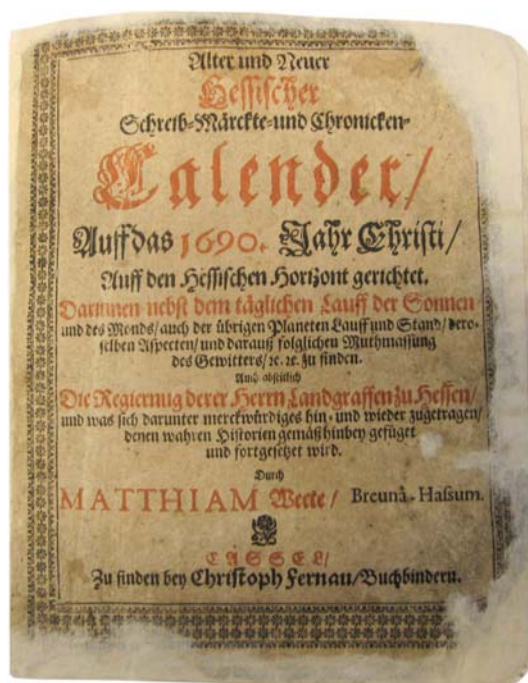 Alter und Neuer
Hessischer
Schreib-Märckte-und Chronicken-
Calender/
Auff das 1690. Jahr Christi/
Auff den Hessischen Horizont gerichtet.
Darinnen nebst dem täglichen Lauff der Sonnen
und des Monds/ auch der übrigen Planeten Lauff und Stand/ dero-
selben Aspecten/ und darauß folglichen Muthmassung
des Gewitters/ ꝛc. ꝛc. zu finden.
Auch abseitlich
Die Regierung derer Herrn Landgraffen zu Hessen/
und was sich darunter merckwürdiges hin- und wieder zugetragen/
denen wahren Historien gemäß hinbey gefüget
und fortgesetzet wird.
Durch
MATTHIAM Meete/ Breunâ-Haßum.
CASSEL/
Zu finden bey Christoph Fernau/ Buchbindern.